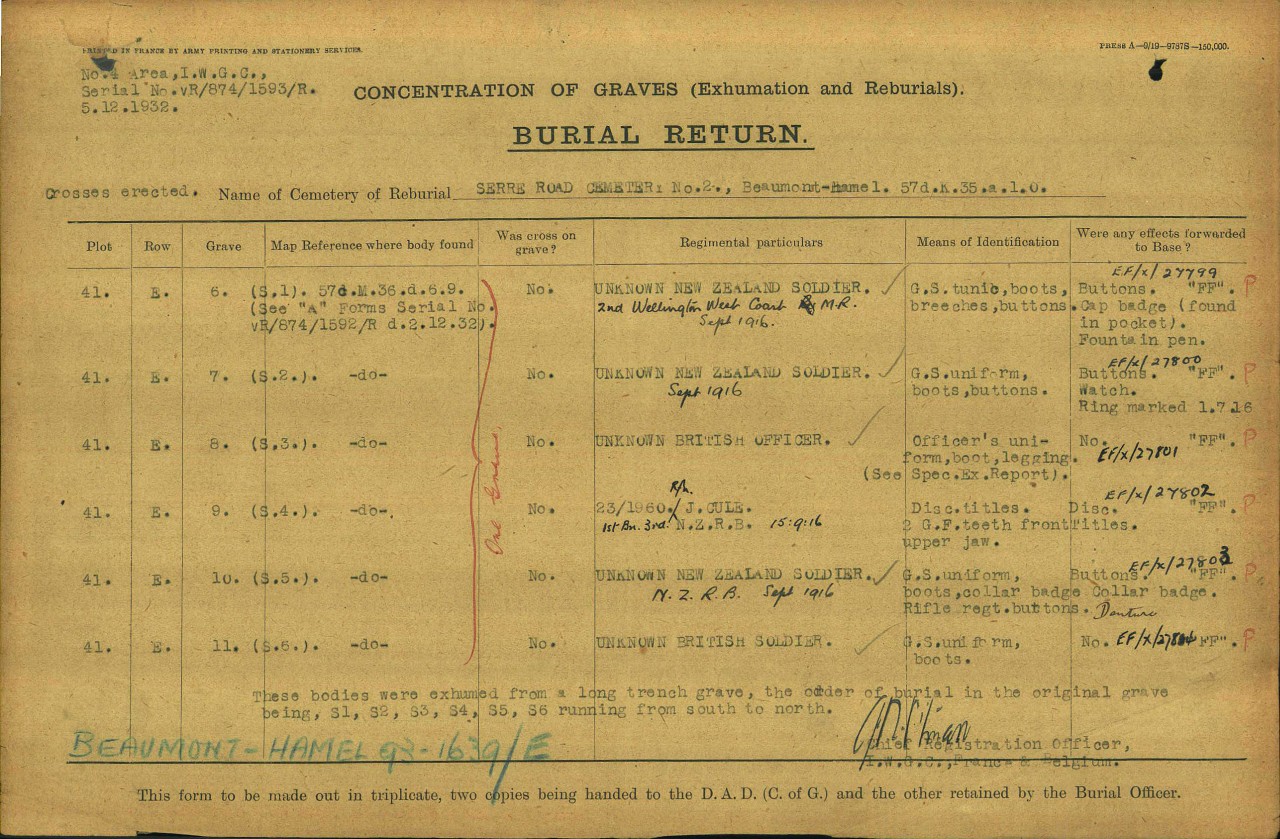 PRINTED IN FRANCE BY ARMY PRINTING AND STATIONERY SERVICES.
PRESS A—9/19—9787S—150,000.
No.4 Area,I.W.G.C.,
Serial No.vR/874/1593/R.
5.12.1932.
CONCENTRATION OF GRAVES (Exhumation and Reburials).
BURIAL RETURN.
Crosses erected. Name of Cemetery of Reburial SERRE ROAD CEMETERY No.2., Beaumont-Hamel. 57d.K.35.a.1.0.
Plot Row Grave Map Reference where body found Was cross on grave? Regimental particulars Means of Identification Were any effects forwarded to Base?
EF/x/27799
41. E. 6. (S.1). 57d.M.36.d.6.9. No. UNKNOWN NEW ZEALAND SOLDIER. G.S.tunic,boots, Buttons. "FF". P
(See "A" Forms Serial No. 2nd Wellington West Coast M.R. breeches,buttons. Cap badge (found
vR/874/1592/R d.2.12.32). Sept 1916. in pocket).
Fountain pen.
EF/x/27800
41. E. 7. (S.2.). -do- No. UNKNOWN NEW ZEALAND SOLDIER. G.S.uniform, Buttons. "FF". P
Sept 1916 boots,buttons. Watch.
Ring marked 1.7.16
41. E. 8. (S.3.). -do- No. UNKNOWN BRITISH OFFICER. Officer's uni- No. "FF". P
form,boot,legging. EF/x/27801
(See Spec.Ex.Report).
R/h. EF/x/27802
41. E. 9. (S.4.). -do- No. 23/1960. J.CULE. Disc.titles. Disc. "FF". P
1st Bn. 3rd. N.Z.R.B. 15.9.16 2 G.F.teeth front Titles.
upper jaw.
EF/x/27803
41. E. 10. (S.5.). -do- No. UNKNOWN NEW ZEALAND SOLDIER. G.S.uniform, Buttons. "FF". P
N. Z. R. B. Sept 1916 boots,collar badge Collar badge.
Rifle regt.buttons. Denture
41. E. 11. (S.6.). -do- No. UNKNOWN BRITISH SOLDIER. G.S.uniform, No. EF/x/27804 "FF". P
boots.
One Grave.
These bodies were exhumed from a long trench grave, the order of burial in the original grave
being, S1, S2, S3, S4, S5, S6 running from south to north.
BEAUMONT-HAMEL 93-1639/E
Chief Registration Officer,
I.W.G.C.,France & Belgium.
This form to be made out in triplicate, two copies being handed to the D. A. D. (C. of G.) and the other retained by the Burial Officer.